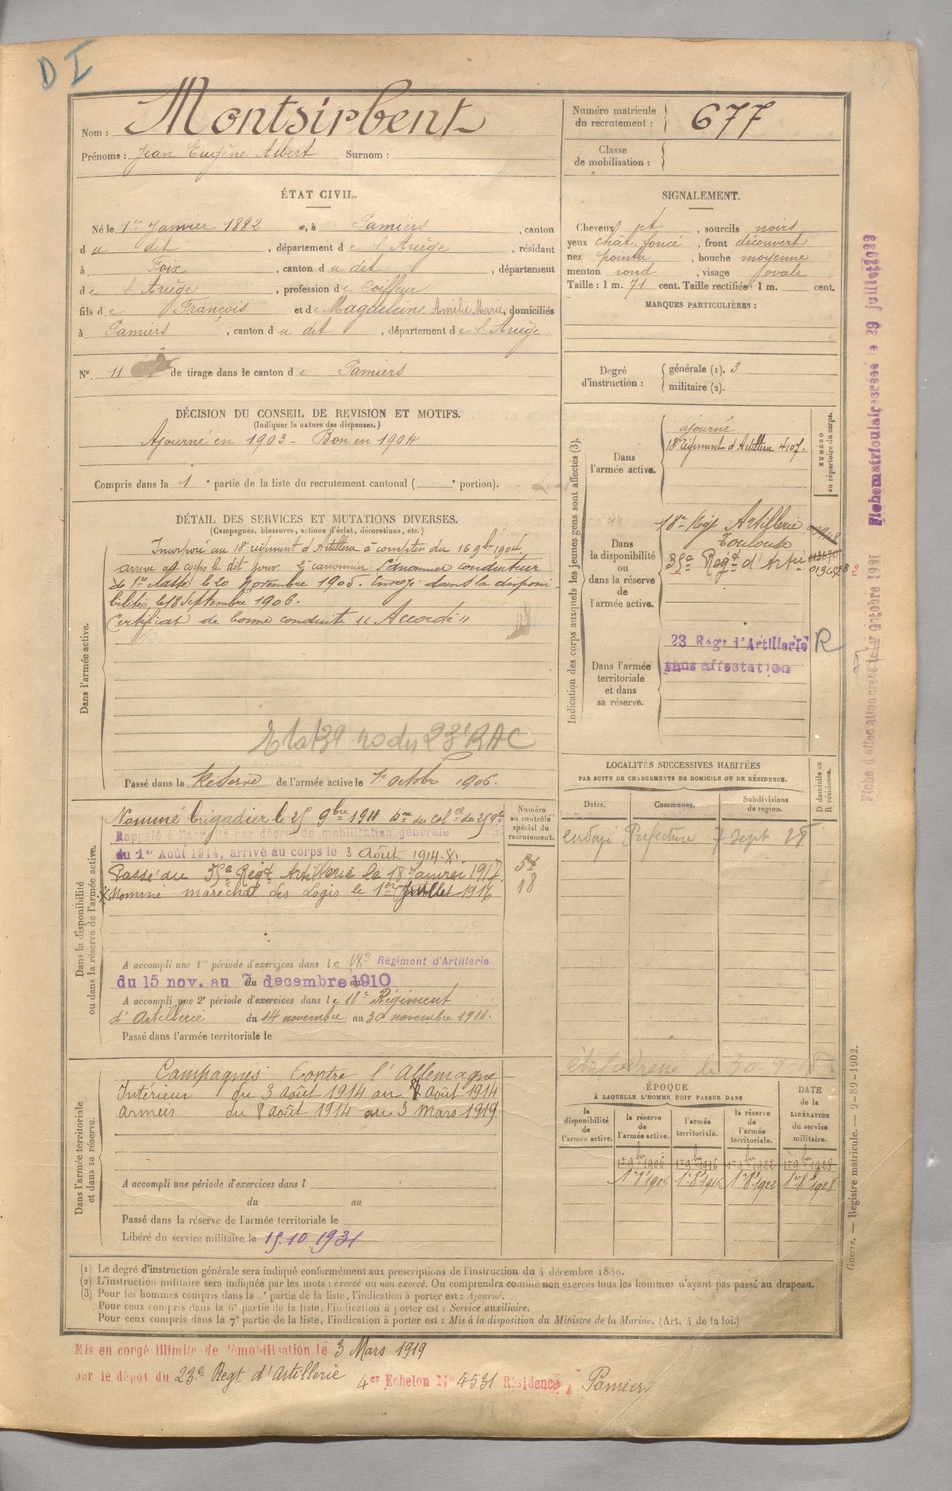 D I
Nom : Montsirbent
Prénoms : Jean Eugène Albert Surnom :
Numéro matricule du recrutement : 677
Classe de mobilisation :
ÉTAT CIVIL.
Né le 1er Janvier 1882, à Pamiers, canton
d u dit, département d e l'Ariège, résidant
à Foix, canton d u dit, département
d e l'Ariège, profession d e Coiffeur
fils d e François et d e Magdeleine Amélie Marie, domiciliés
à Pamiers, canton d u dit, département d e l'Ariège
N° 11 de tirage dans le canton d e Pamiers
SIGNALEMENT.
Cheveux jt, sourcils noirs
yeux chât. foncé, front découvert
nez pointu, bouche moyenne
menton rond, visage ovale
Taille : 1 m. 71 cent. Taille rectifiée : 1 m. cent.
MARQUES PARTICULIÈRES :
Degré d'instruction : générale (1). 3
militaire (2).
DÉCISION DU CONSEIL DE REVISION ET MOTIFS.
(Indiquer la nature des dispenses.)
Ajourné en 1903 - Bon en 1904
Compris dans la 1e partie de la liste du recrutement cantonal ( e portion).
DÉTAIL DES SERVICES ET MUTATIONS DIVERSES.
(Campagnes, blessures, actions d'éclat, décorations, etc.)
Dans l'armée active.
Incorporé au 18e régiment d'Artillerie à compter du 16 9bre 1904,
arrivé au corps le dit jour 2e canonnier Canonnier conducteur
de 1re classe le 20 Novembre 1905. Envoyé dans la disponi
bilité, le 18 Septembre 1906.
Certificat de bonne conduite "Accordé"
23e RAC
Passé dans la Réserve de l'armée active le 1er octobre 1906.
Indication des corps auxquels les jeunes gens sont affectés (3).
NUMÉRO au répertoire du corps.
Dans l'armée active.
ajourné
18e Régiment d'Artillerie 4107.
Dans la disponibilité ou dans la réserve de l'armée active.
18e Rég Artillerie
Toulouse
35e Regt d'Artie
Dans l'armée territoriale et dans sa réserve.
23 Régt d'Artillerie R
sans affectation
LOCALITÉS SUCCESSIVES HABITÉES
PAR SUITE DE CHANGEMENTS DE DOMICILE OU DE RÉSIDENCE.
D domicile ou R résidence.
Dates. Communes. Subdivisions de région.
Préfecture 7 sept 28
Dans la disponibilité ou dans la réserve de l'armée active.
Numéro au contrôle spécial du recrutement.
18
Nommé brigadier le 25 9bre 1911
Rappelé à l'activité par décret de mobilisation générale
du 1er Août 1914, arrivé au corps le 3 Août 1914.
Passé au 35e Regt Artillerie le 18 Janvier 1917.
Nommé maréchal des Logis le 1er Juillet 1917
A accompli une 1re période d'exercices dans l e 18e Régiment d'Artillerie
du 15 nov. au 7 decembre 1910
A accompli une 2e période d'exercices dans l e 18e Régiment
d'Artillerie du 14 novembre au 30 novembre 1911.
Passé dans l'armée territoriale le
Dans l'armée territoriale et dans sa réserve.
Campagnes Contre l'Allemagne
Intérieur du 3 août 1914 au 7 Août 1914
armées du 8 août 1914 au 3 Mars 1919
A accompli une période d'exercices dans l
du au
Passé dans la réserve de l'armée territoriale le
Libéré du service militaire le 15.10.1931
ÉPOQUE
À LAQUELLE L'HOMME DOIT PASSER DANS
la disponibilité de l'armée active.
la réserve de l'armée active.
l'armée territoriale.
la réserve de l'armée territoriale.
DATE de la LIBÉRATION du service militaire.
1er 9bre 1906 1er 9bre 1916 1er 9bre 1922 1er 9bre 1928
1er 8 1906 1er 8 1916 1er 8 1922 1er 8 1928
(1) Le degré d'instruction générale sera indiqué conformément aux prescriptions de l'instruction du 4 décembre 1889.
(2) L'instruction militaire sera indiquée par les mots : exercé ou non exercé. On comprendra comme non exercés tous les hommes n'ayant pas passé au drapeau.
(3) Pour les hommes compris dans la 5e partie de la liste, l'indication à porter est : Ajourné.
Pour ceux compris dans la 6e partie de la liste, l'indication à porter est : Service auxiliaire.
Pour ceux compris dans la 7e partie de la liste, l'indication à porter est : Mis à la disposition du Ministre de la Marine. (Art. 4 de la loi.)
Mis en congé illimité de démobilisation le 3 Mars 1919
par le dépôt du 23e Regt d'Artillerie 4er Echelon N° 4531 Résidence, Pamiers
Guerre. — Registre matricule. — 9-89-1902.
Fiche matriculaire créée le 29 juillet
Fiche d'affectation créée le octobre 1921